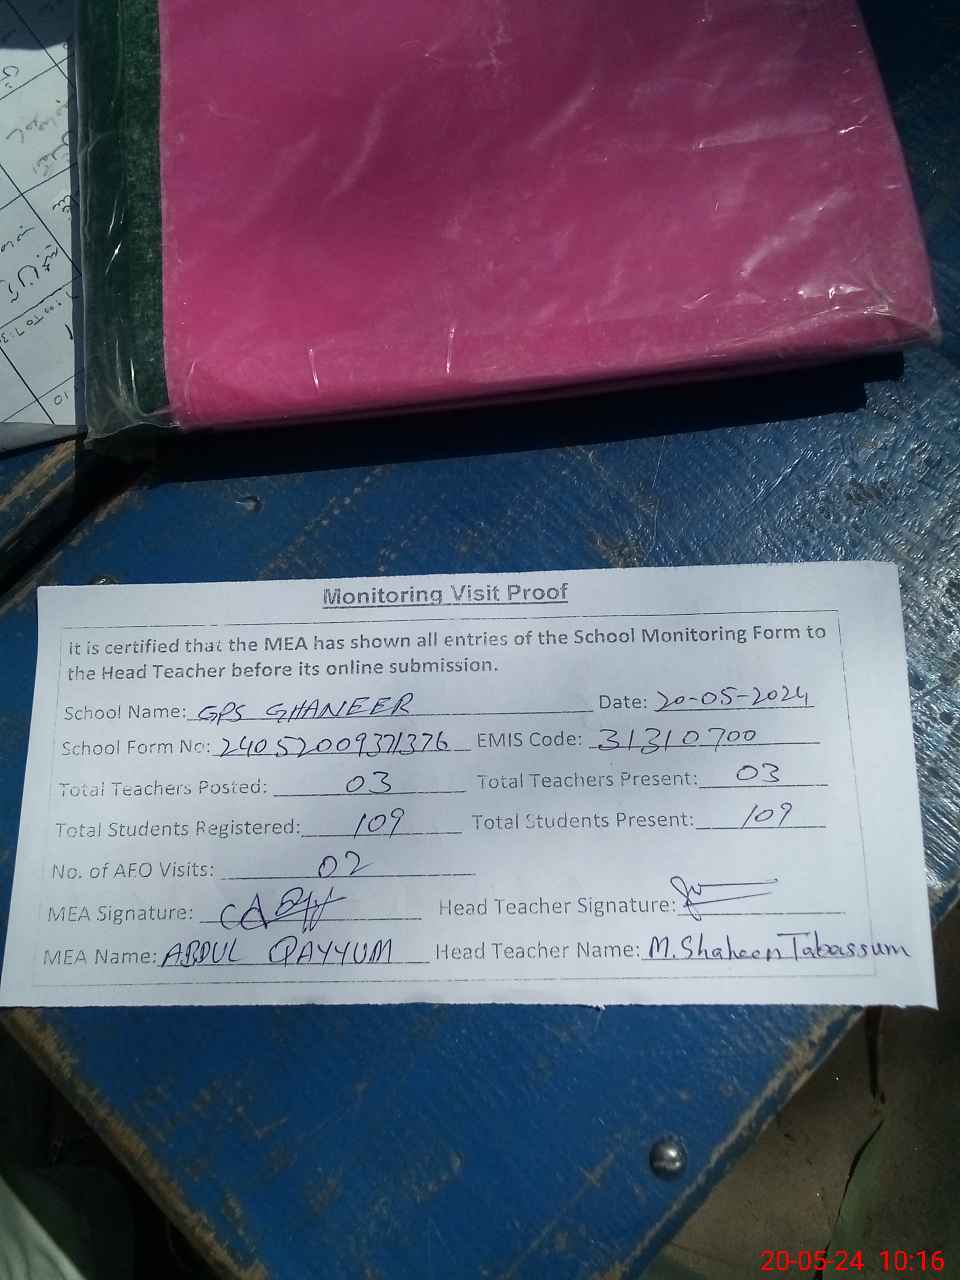 Monitoring Visit Proof
it is certified that the MEA has shown all entries of the School Monitoring Form to
the Head Teacher before its online submission.
School Name: GPS GHANEER Date: 20-05-2024
School Form No: 24052009371376 EMIS Code: 31310700
Total Teachers Posted: 03 Total Teachers Present: 03
Total Students Registered: 109 Total Students Present: 109
No. of AEO Visits: 02
MEA Signature: Head Teacher Signature:
MEA Name: ABDUL QAYYUM Head Teacher Name: M. Shaheen Tabassum
20-05-24 10:16